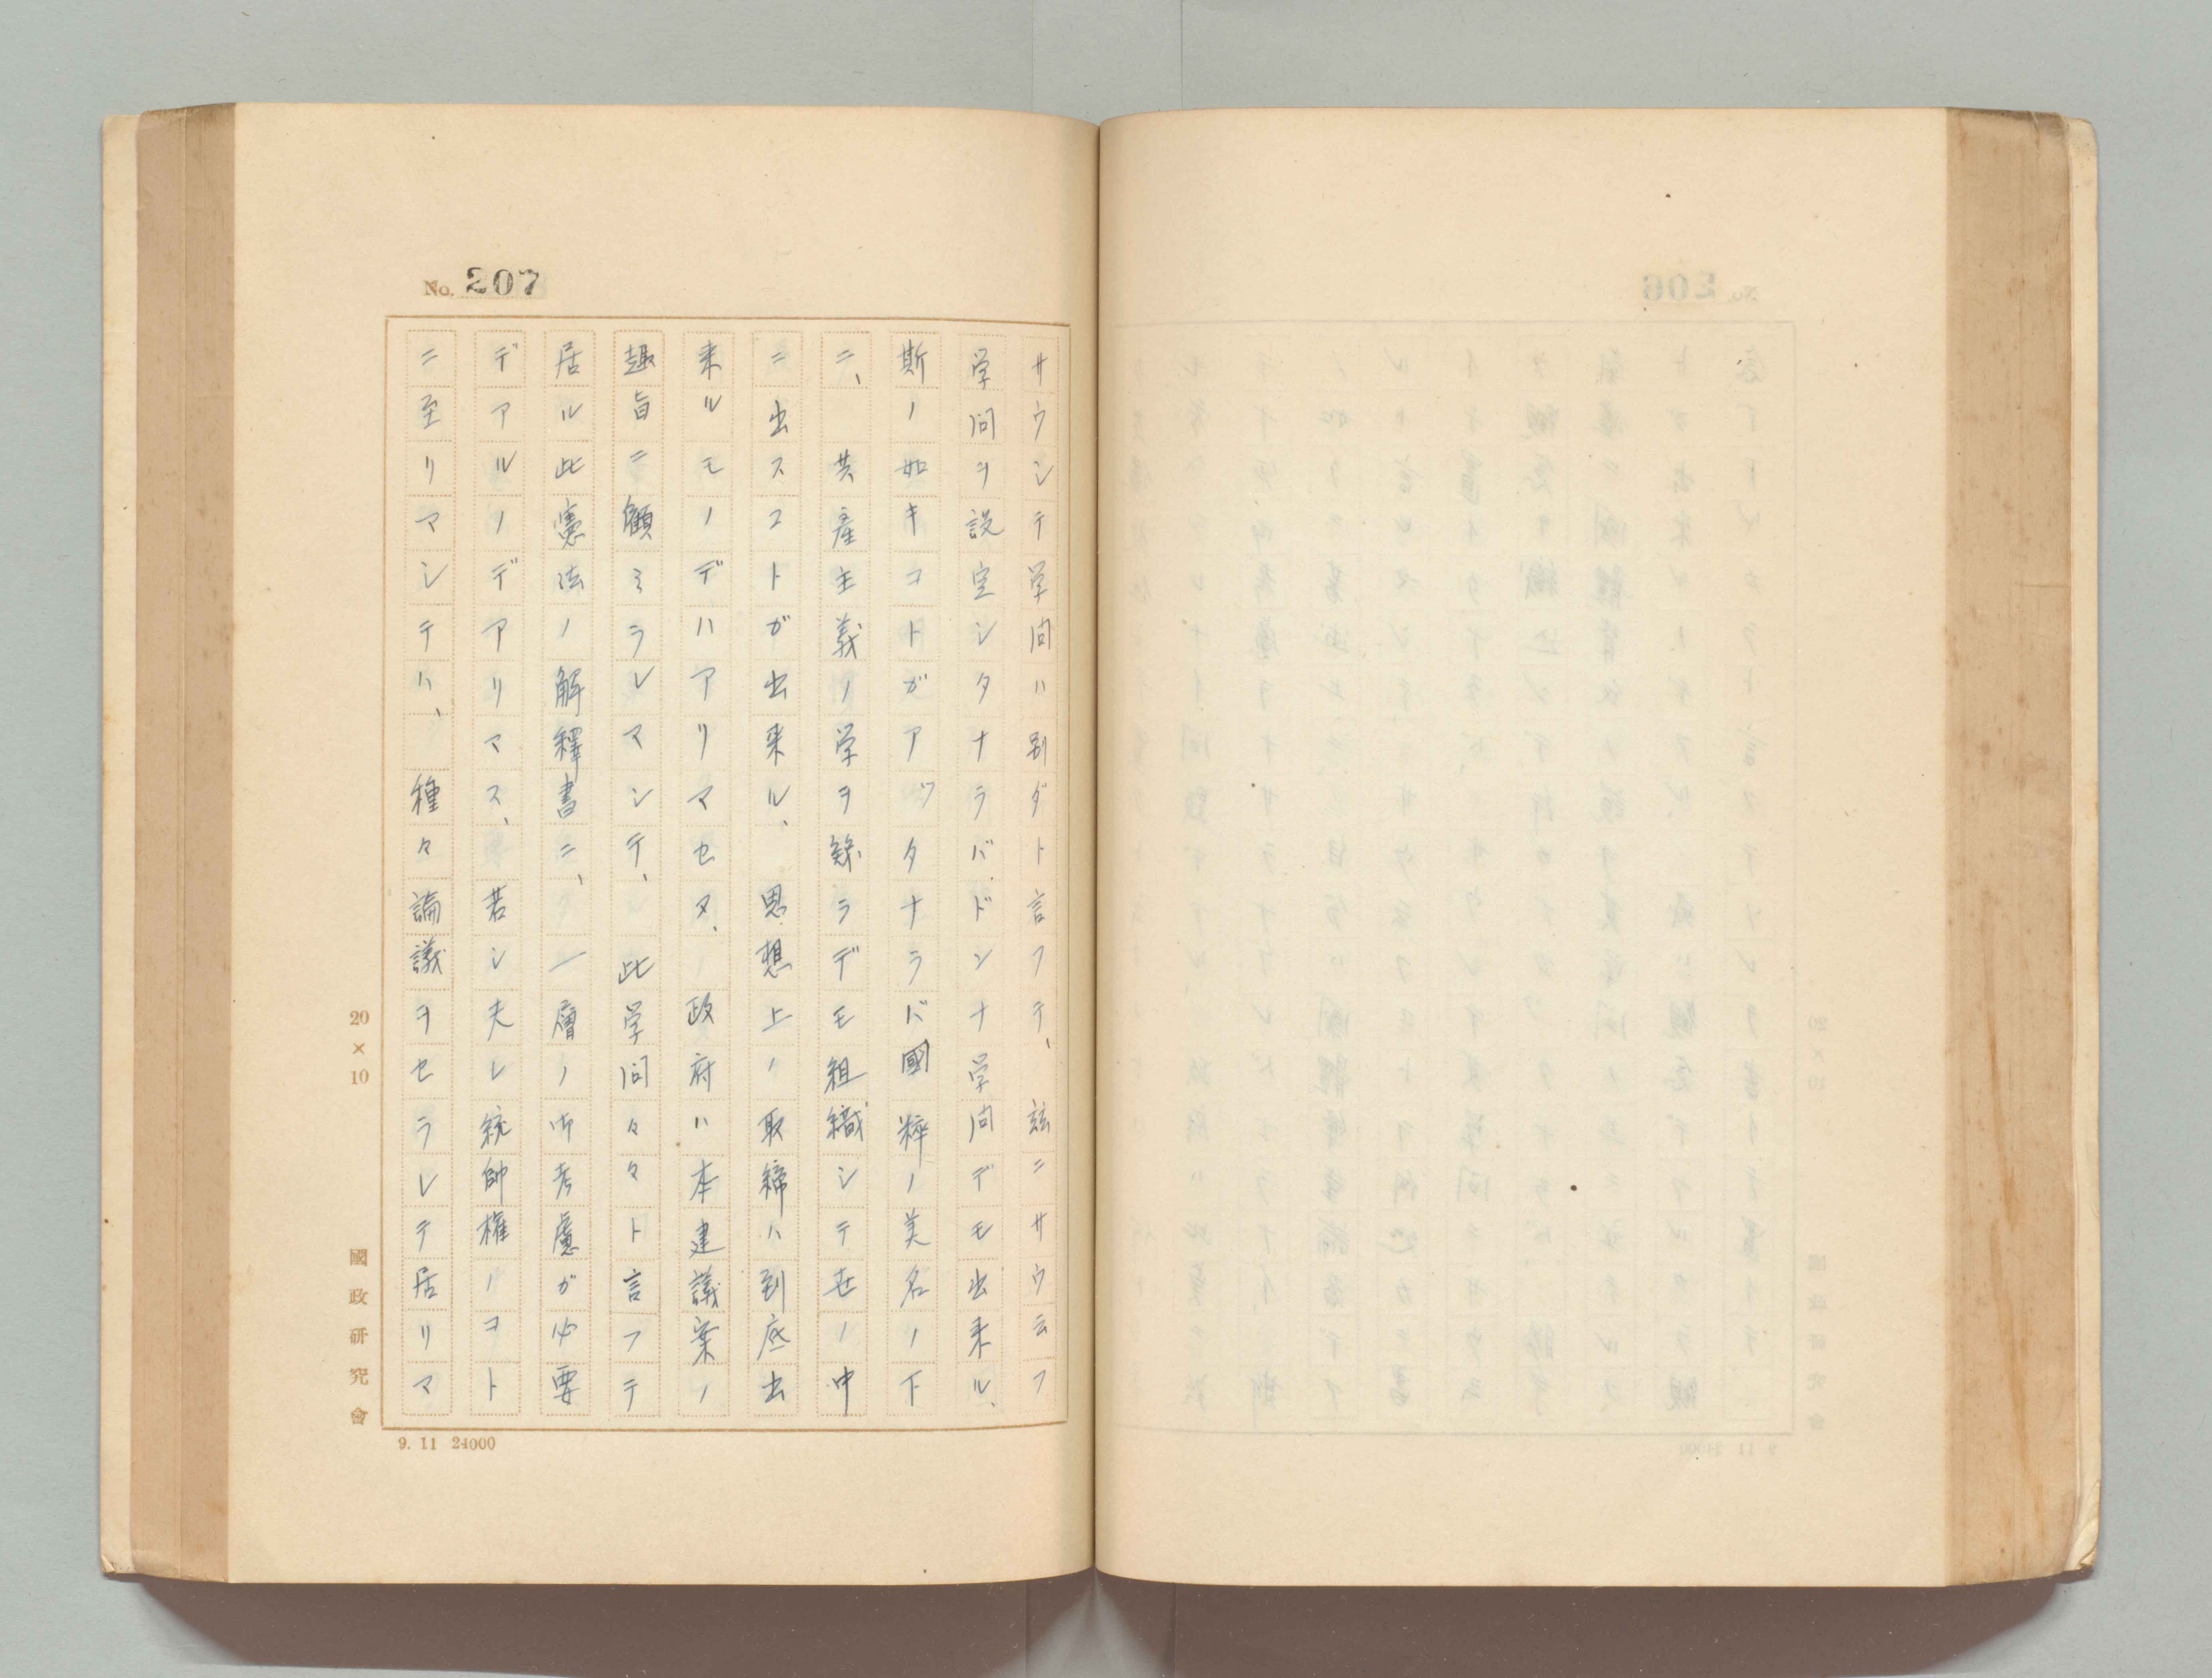 No. 207
サウシテ学問ハ別ダト言フテ、茲ニサウ云フ
学問ヲ設定シタナラバ、ドンナ学問デモ出来ル、
斯ノ如キコトガアツタナラバ國粹ノ美名ノ下
ニ、共産主義ノ学ヲ錬ラデモ組織シテ世ノ中
ニ出スコトガ出来ル、思想上ノ取締ハ到底出
来ルモノデハアリマセヌ、政府ハ本建議案ノ
趣旨ニ顧ミラレマシテ、此学問々々ト言フテ
居ル此憲法ノ解釋書ニ、一層ノ御考慮ガ必要
デアルノデアリマス、若シ夫レ統帥權ノコト
ニ至リマシテハ、種々論議ヲセラレテ居リマ
20×10
國政研究會
9. 11 24000